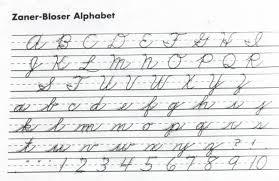 Zaner-Bloser Alphabet
A B C D E F G H I
J K L M N O P Q R
S T U V W X Y Z
a b c d e f g h i j
k l m n o p q r s
t u v w x y z ? !
1 2 3 4 5 6 7 8 9 10